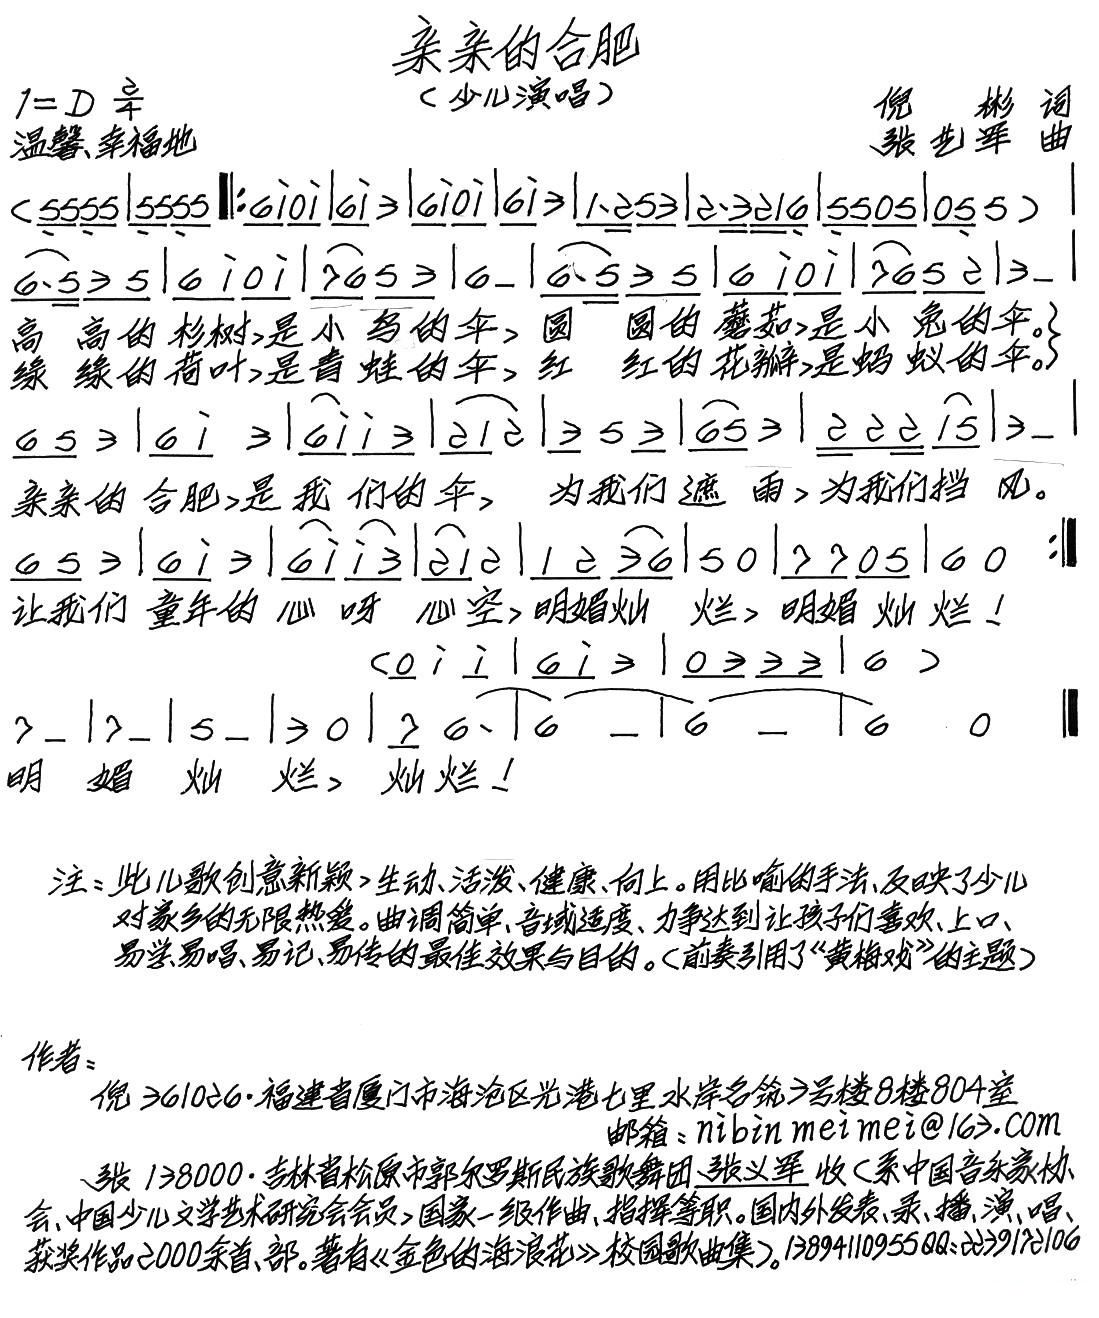 亲亲的合肥
(少儿演唱)
1=D 2/4
倪 彬 词
温馨、幸福地
张艺军 曲
(5555|5555‖:6i0i|6i3|6i0i|6i3|1·253|2·3216|5505|055)|
6·535|6i0i|7653|6-|6·535|6i0i|7652|3-|
高 高的杉树,是小鸟的伞,圆 圆的蘑菇,是小兔的伞。}
缘 缘的荷叶,是青蛙的伞,红 红的花瓣,是蚂蚁的伞。}
653|6i 3|6ii3|212|353|653|22215|3-|
亲亲的合肥,是我们的伞, 为我们遮雨,为我们挡风。
653|6i3|6ii3|212|1236|50|7705|60:‖
让我们童年的心呀心空,明媚灿 烂,明媚灿烂!
(0ii|6i3|0333|6)
7-|7-|5-|30|76·|6-|6-|60‖
明 媚 灿 烂,灿烂!
注:此儿歌创意新颖,生动、活泼、健康、向上。用比喻的手法、反映了少儿
对家乡的无限热爱。曲调简单、音域适度、力争达到让孩子们喜欢、上口、
易学、易唱、易记、易传的最佳效果与目的。(前奏引用了《黄梅戏》的主题)
作者:
倪361026·福建省厦门市海沧区兴港七里水岸名筑3号楼8楼804室
邮箱:nibinmeimei@163.com
张138000·吉林省松原市郭尔罗斯民族歌舞团 张义军 收(系中国音乐家协
会、中国少儿文学艺术研究会会员,国家一级作曲、指挥等职。国内外发表、录、播、演、唱、
获奖作品2000余首、部。著有《金色的海浪花》校园歌曲集)。13894110955QQ:2239172106